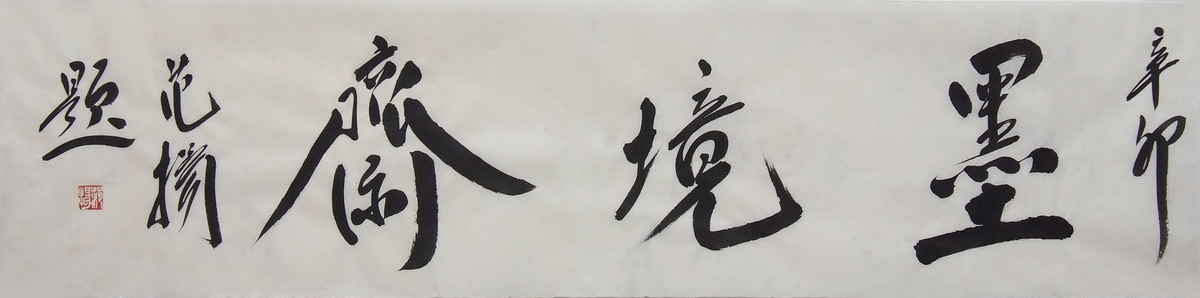 辛卯
墨境齋
范揚
題
范揚